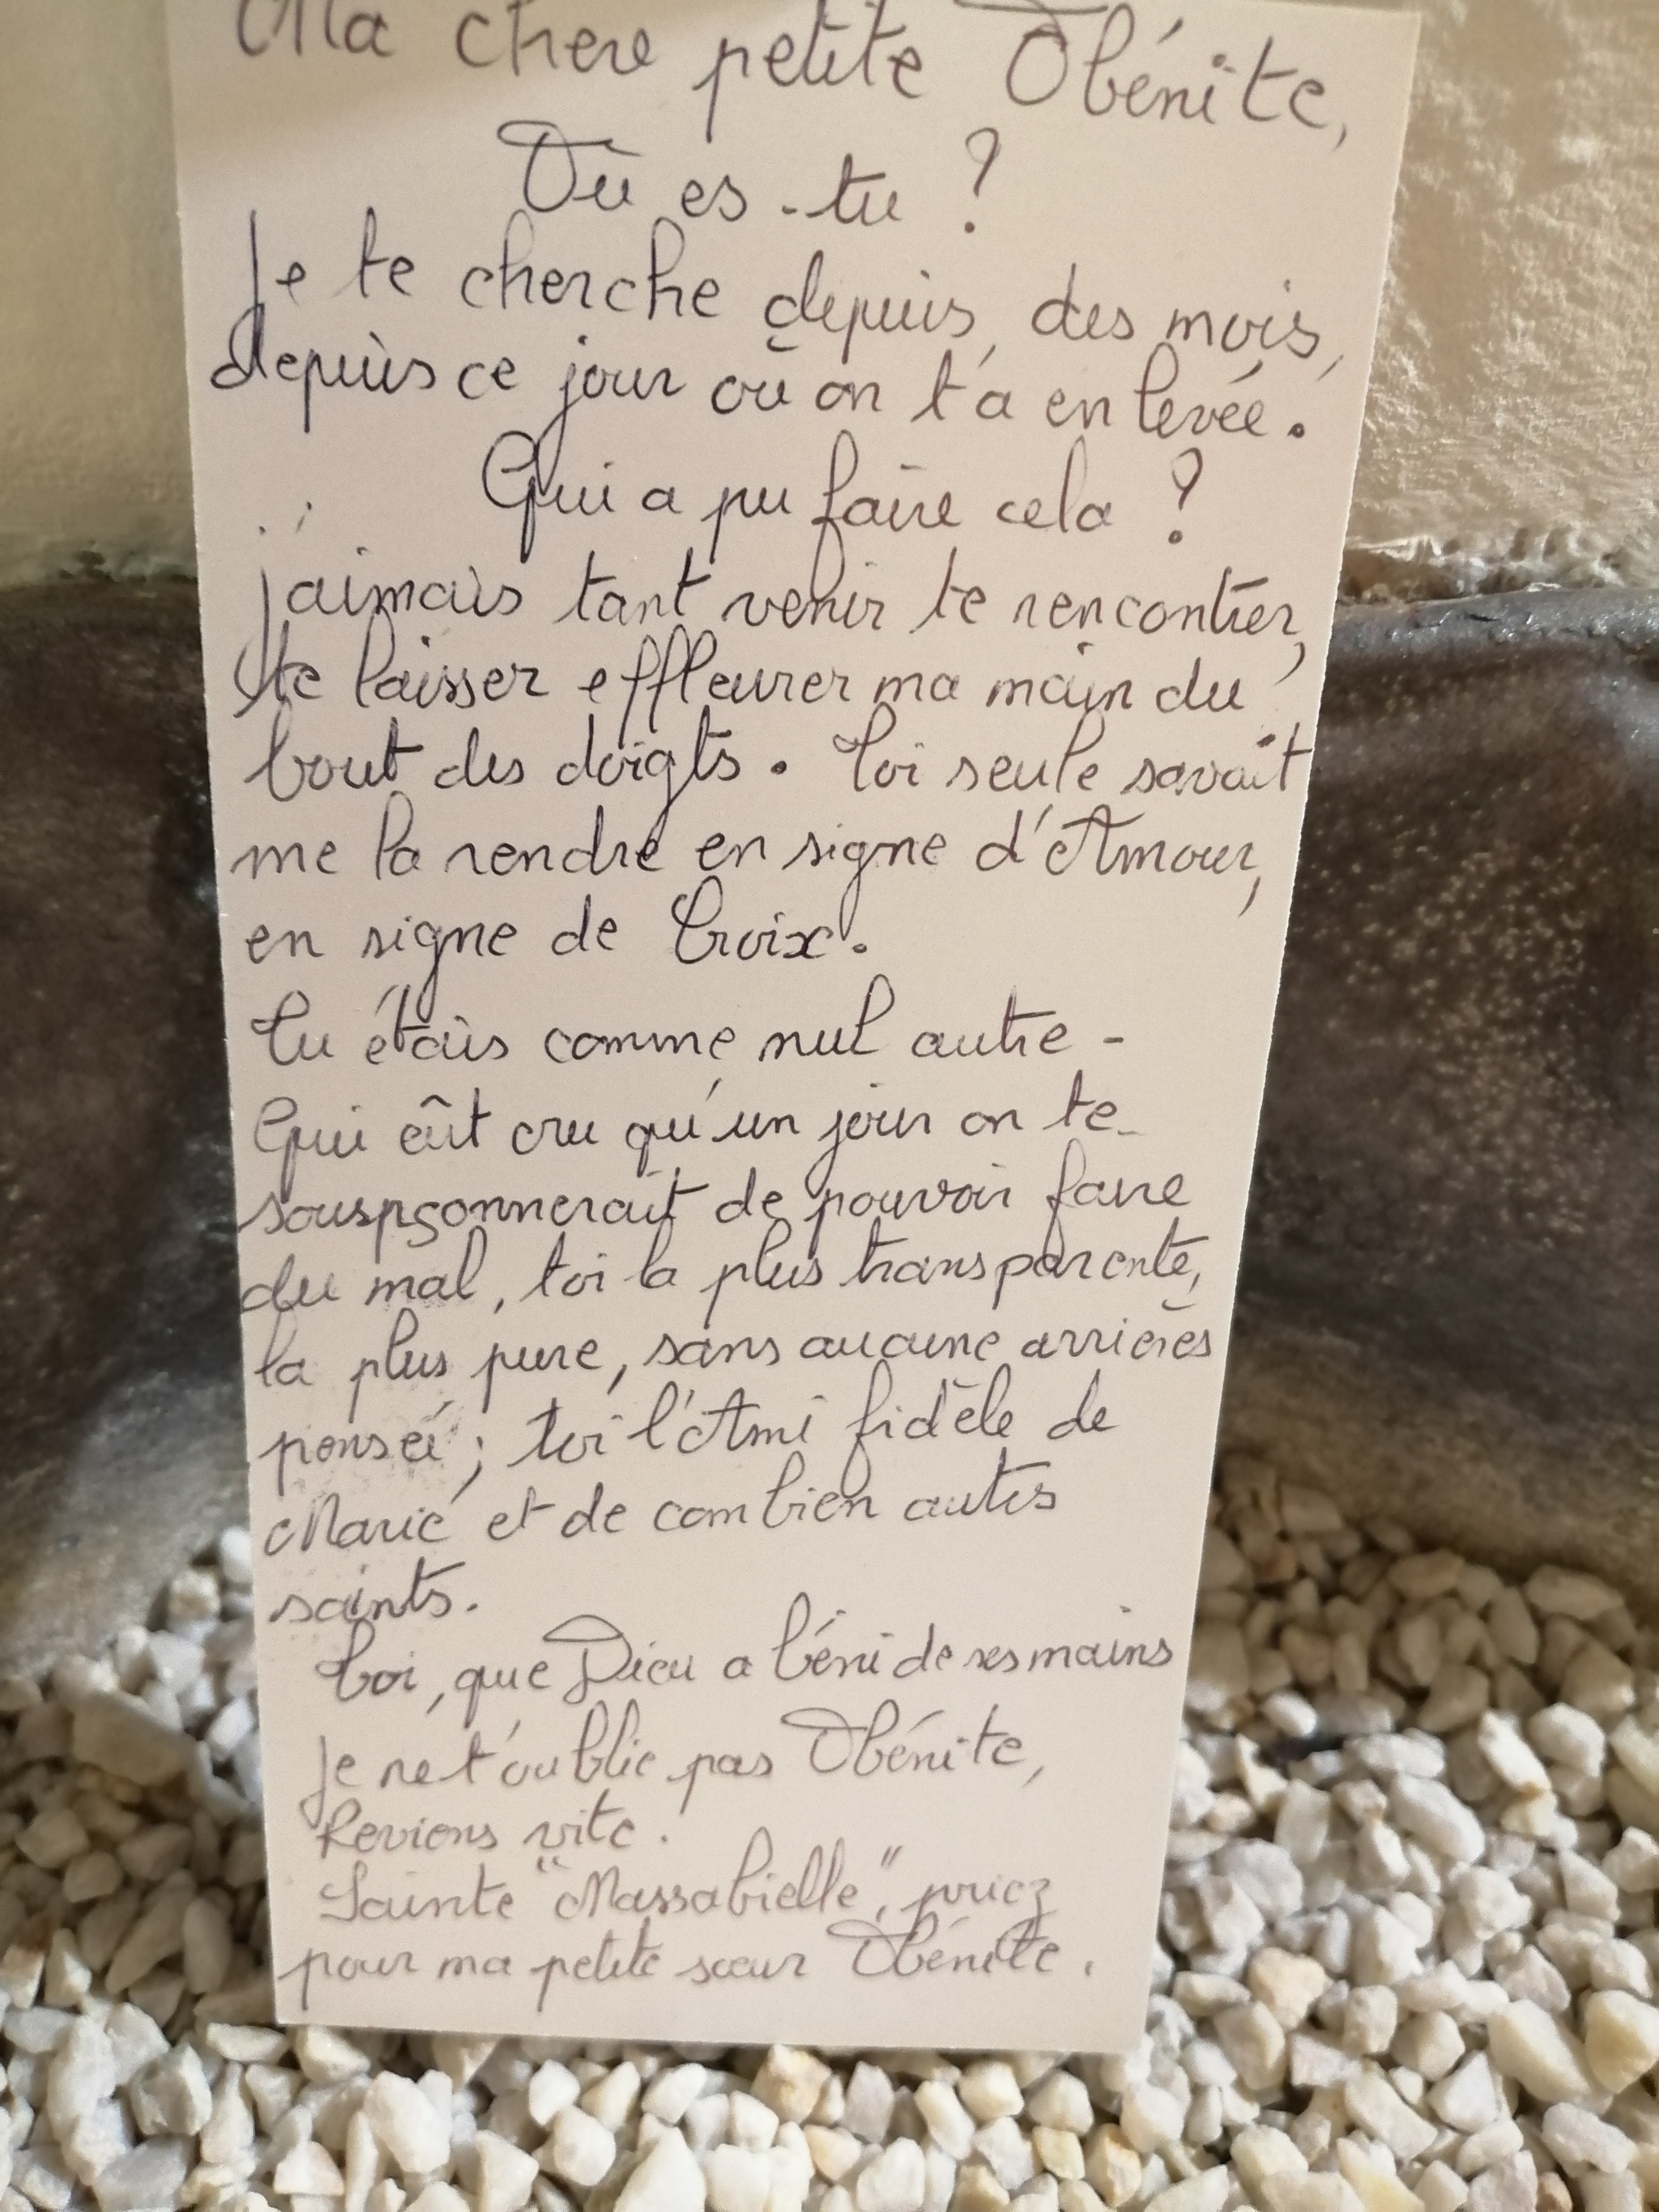 Ma chère petite Obénite,
Où es-tu ?
Je te cherche depuis, des mois,
depuis ce jour où on t'a enlevée.
Qui a pu faire cela ?
j'aimais tant venir te rencontrer,
te laisser effleurer ma main du
bout des doigts. Toi seule savait
me la rendre en signe d'Amour,
en signe de Croix.
Tu étais comme nul autre -
Qui eût cru qu'un jour on te
souspçonnerait de pouvoir faire
du mal, toi la plus transparente,
la plus pure, sans aucune arrières
pensée ; toi l'Ami fidèle de
Marie et de combien autres
saints.
Toi, que Dieu a béni de ses mains
Je ne t'oublie pas Obénite,
Reviens vite.
Sainte "Massabielle", priez
pour ma petite sœur Obénite.